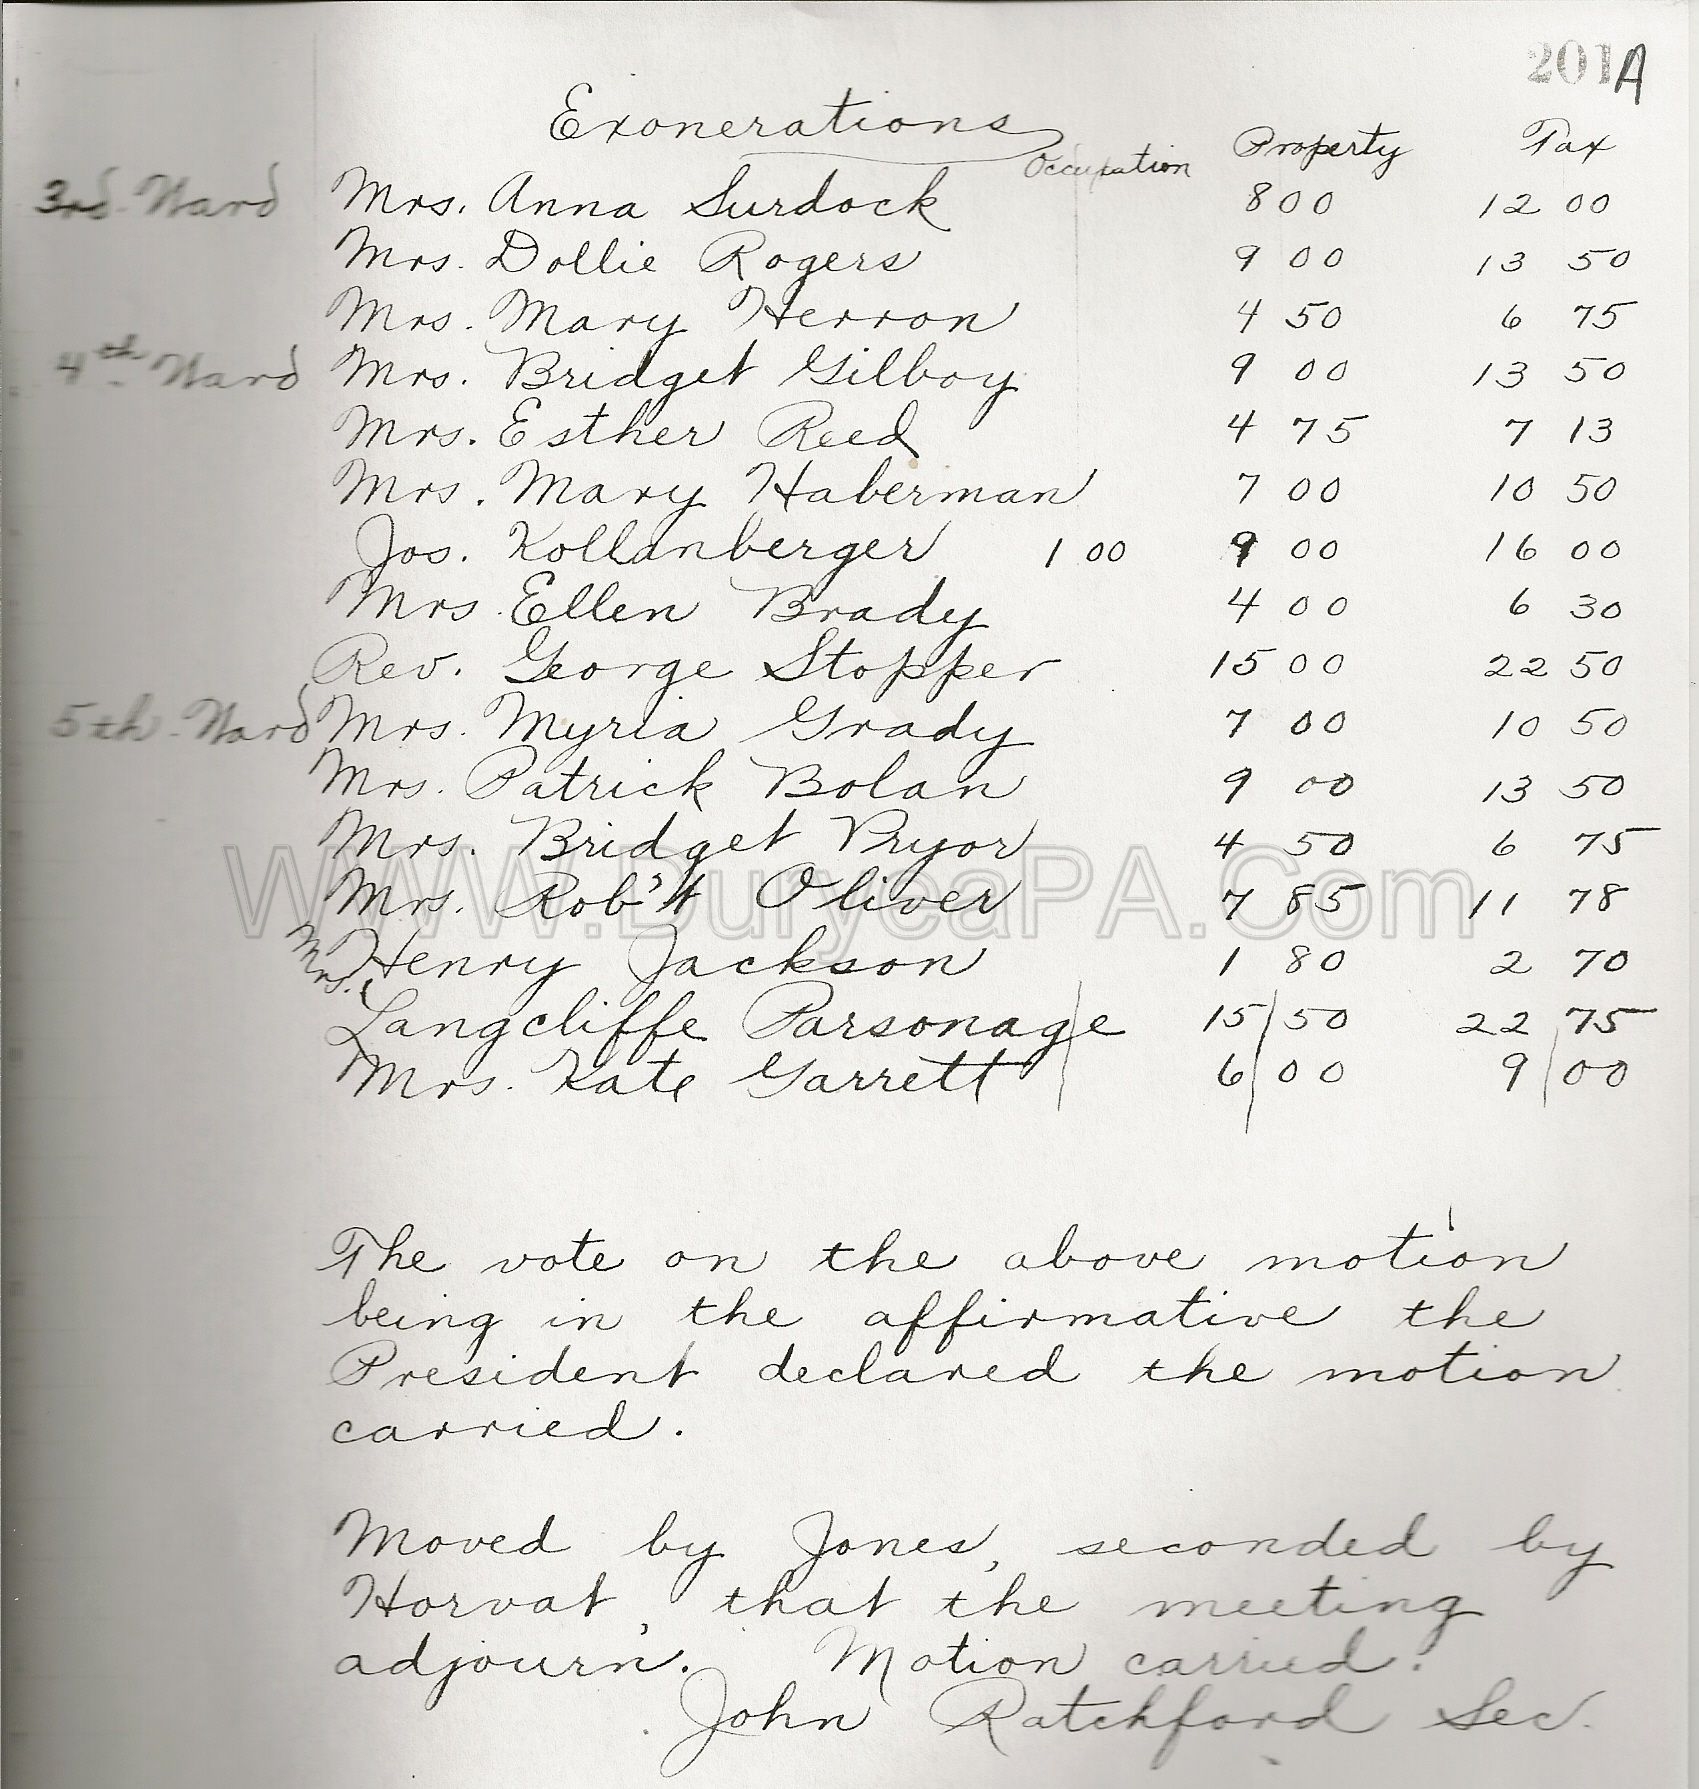 201A
Exonerations
Occupation Property Tax
3rd. Ward Mrs. Anna Surdock 800 12 00
Mrs. Dollie Rogers 9 00 13 50
Mrs. Mary Herron 4 50 6 75
4th. Ward Mrs. Bridget Gilboy 9 00 13 50
Mrs. Esther Reed 4 75 7 13
Mrs. Mary Haberman 7 00 10 50
Jos. Kollanberger 1 00 9 00 16 00
Mrs. Ellen Brady 4 00 6 30
Rev. George Stopper 15 00 22 50
5th. Ward Mrs. Myria Grady 7 00 10 50
Mrs. Patrick Bolan 9 00 13 50
Mrs. Bridget Pryor 4 50 6 75
WWW.DuryeaPA.Com
Mrs. Rob't Oliver 7 85 11 78
Mrs. Henry Jackson 1 80 2 70
Langcliffe Parsonage 15 50 22 75
Mrs. Kate Garrett 6 00 9 00
The vote on the above motion
being in the affirmative the
President declared the motion
carried.
Moved by Jones, seconded by
Horvat, that the meeting
adjourn. Motion carried.
John Ratchford Sec.